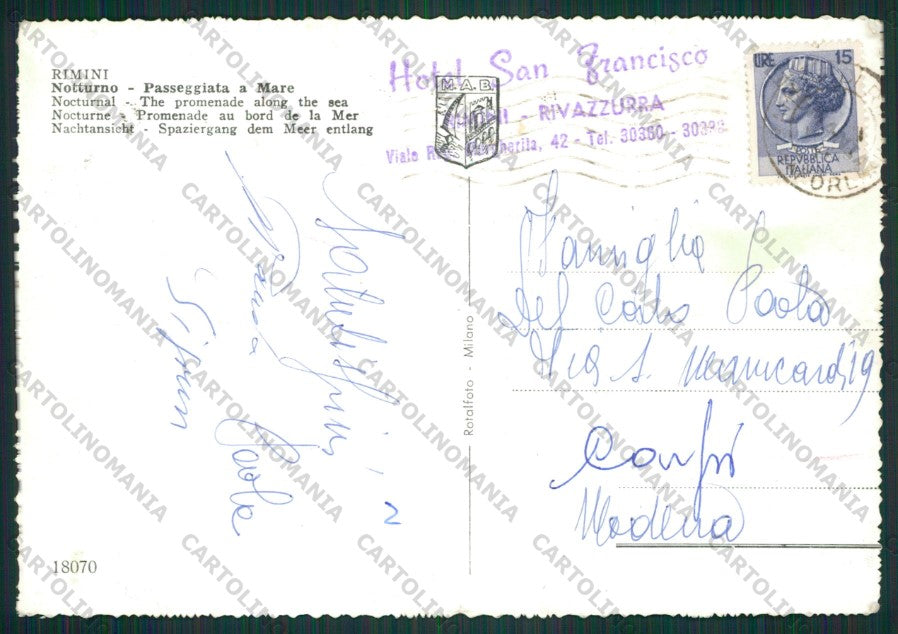 RIMINI
Notturno - Passeggiata a Mare
Nocturnal - The promenade along the sea
Nocturne - Promenade au bord de la Mer
Nachtansicht - Spaziergang dem Meer entlang
Hotel San Francisco
RIVAZZURRA
Viale R. Margherita, 42 - Tel. 30360 -
M.A.B.
LIRE 15
POSTE
REPVBBLICA
ITALIANA
Famiglia
Del Carlo Paola
Via S.
Carpi
Modena
Paola
Rotalfoto - Milano
18070
CARTOLINOMANIA